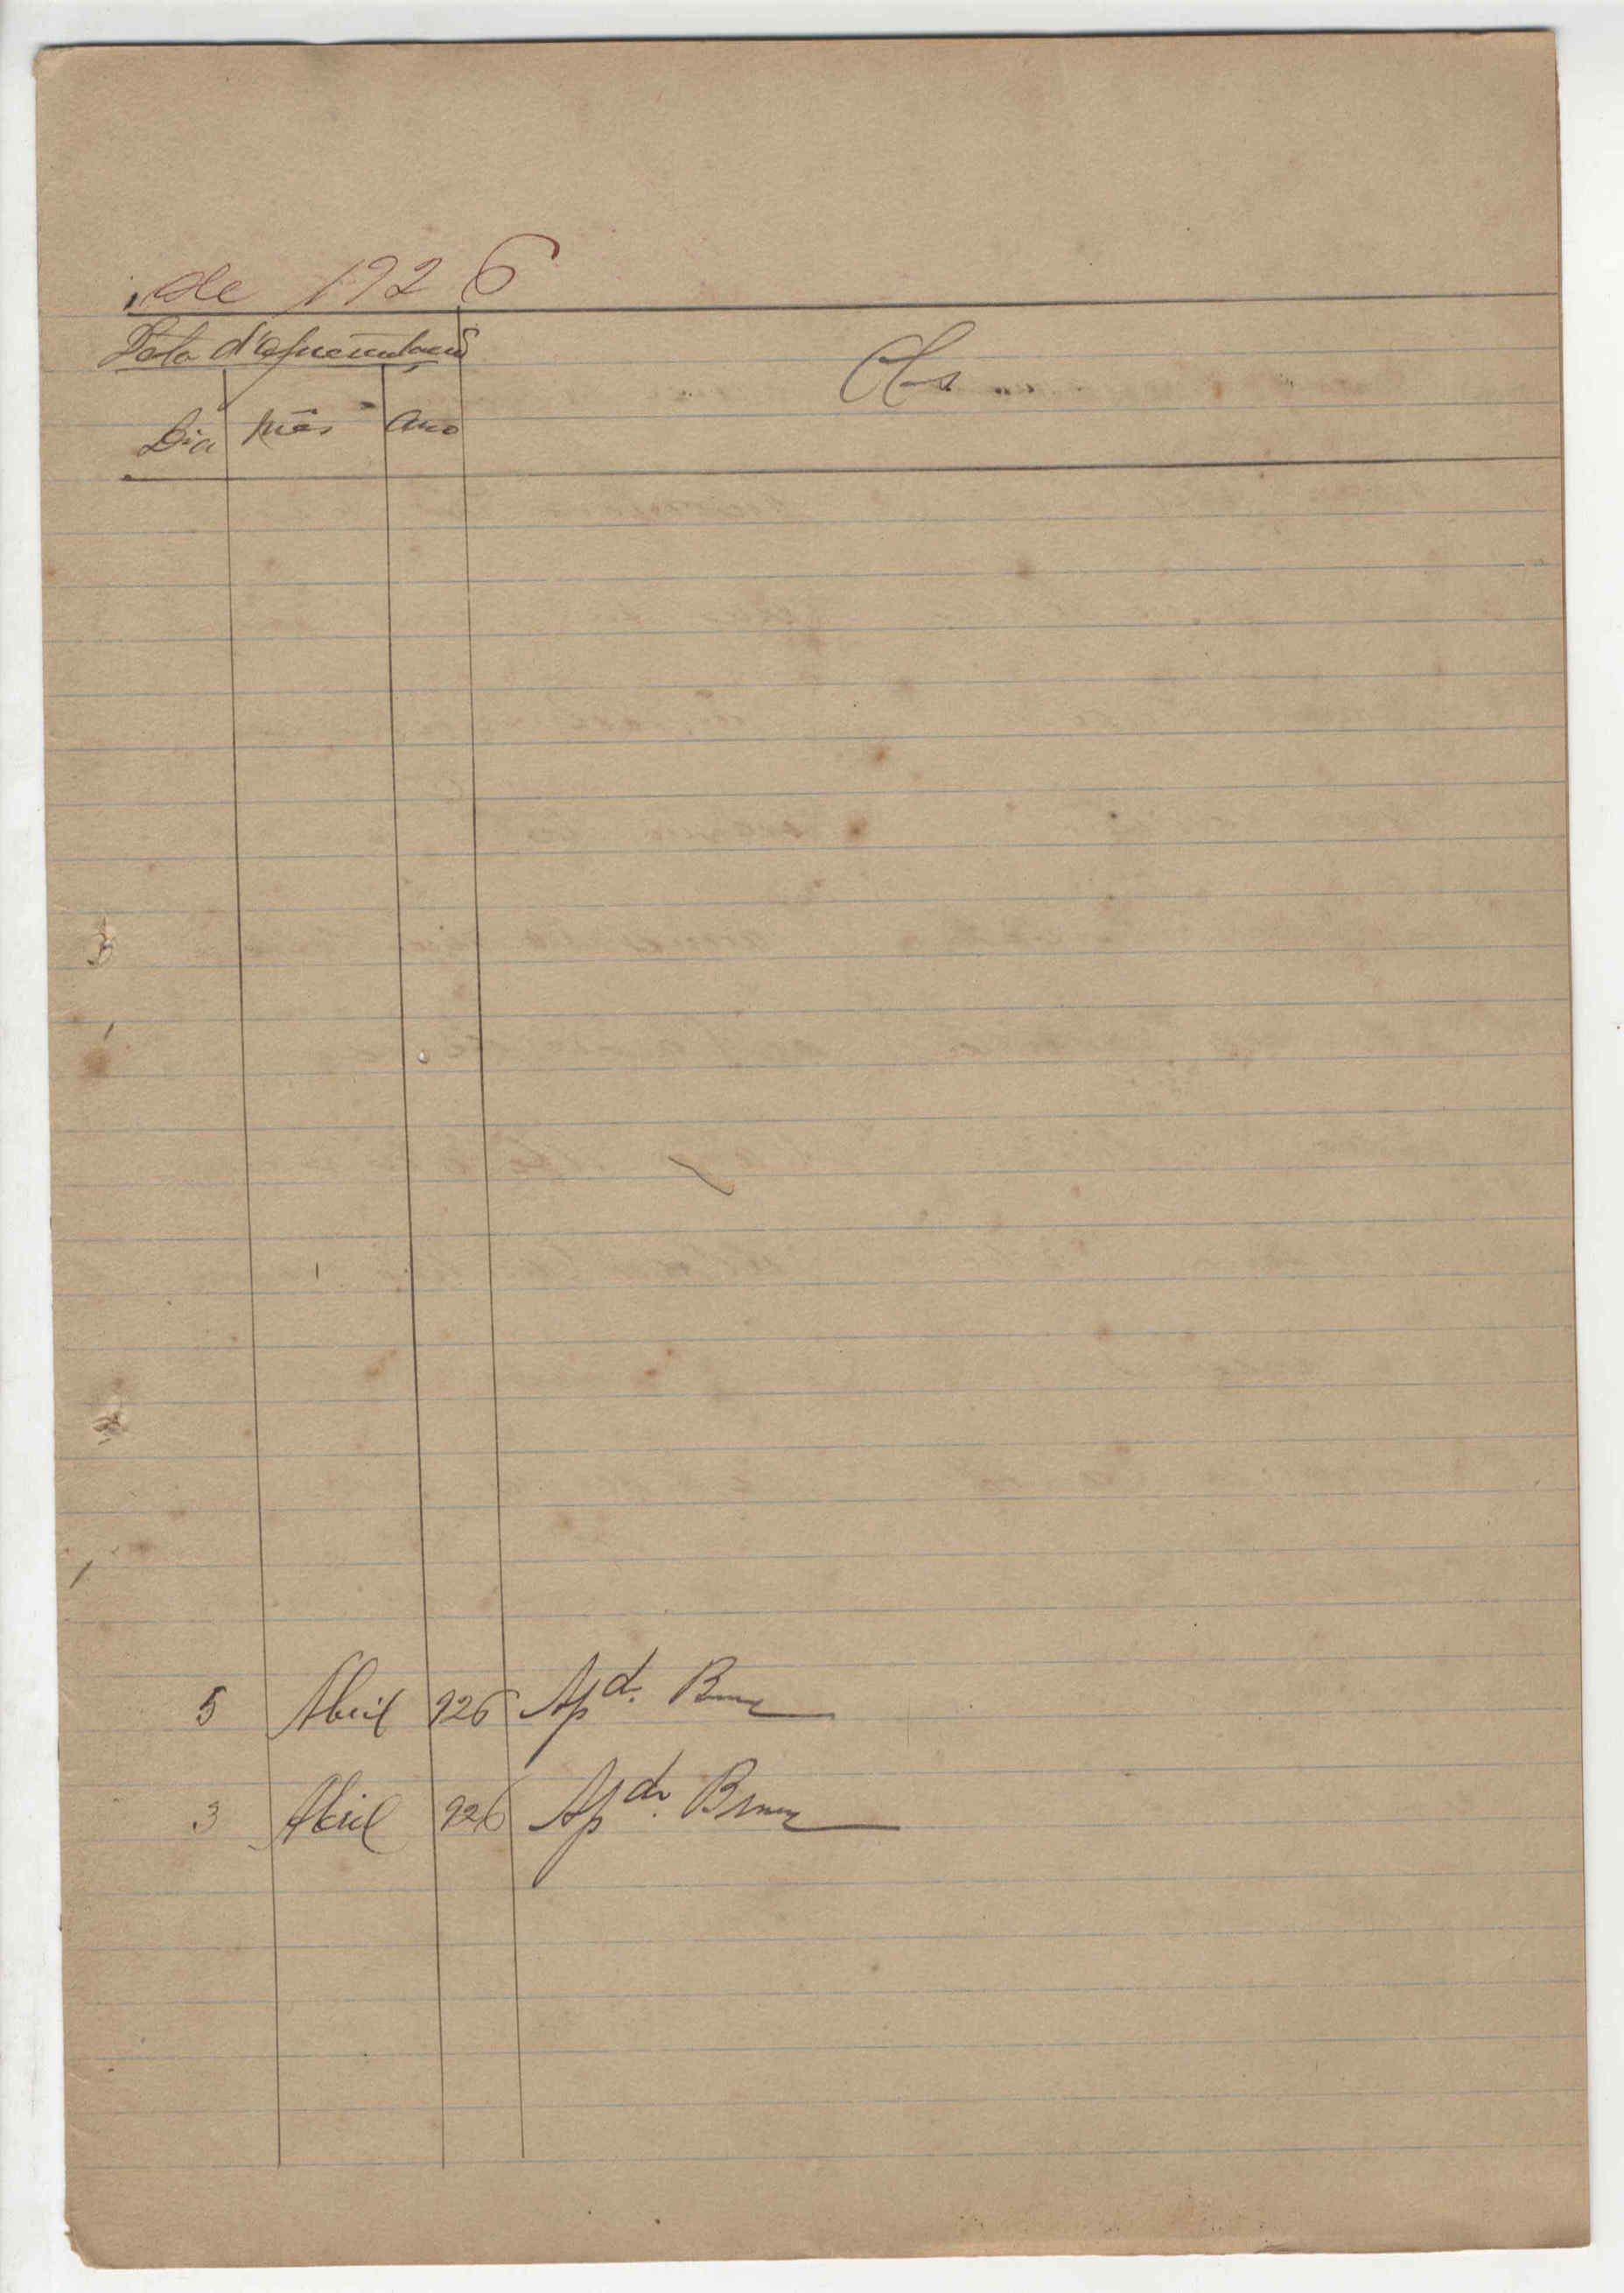 de 1926
Data d'apresentação
Obs
Dia Mês Ano
5 Abril 926 Apd.
3 Abril 926 Apdo.